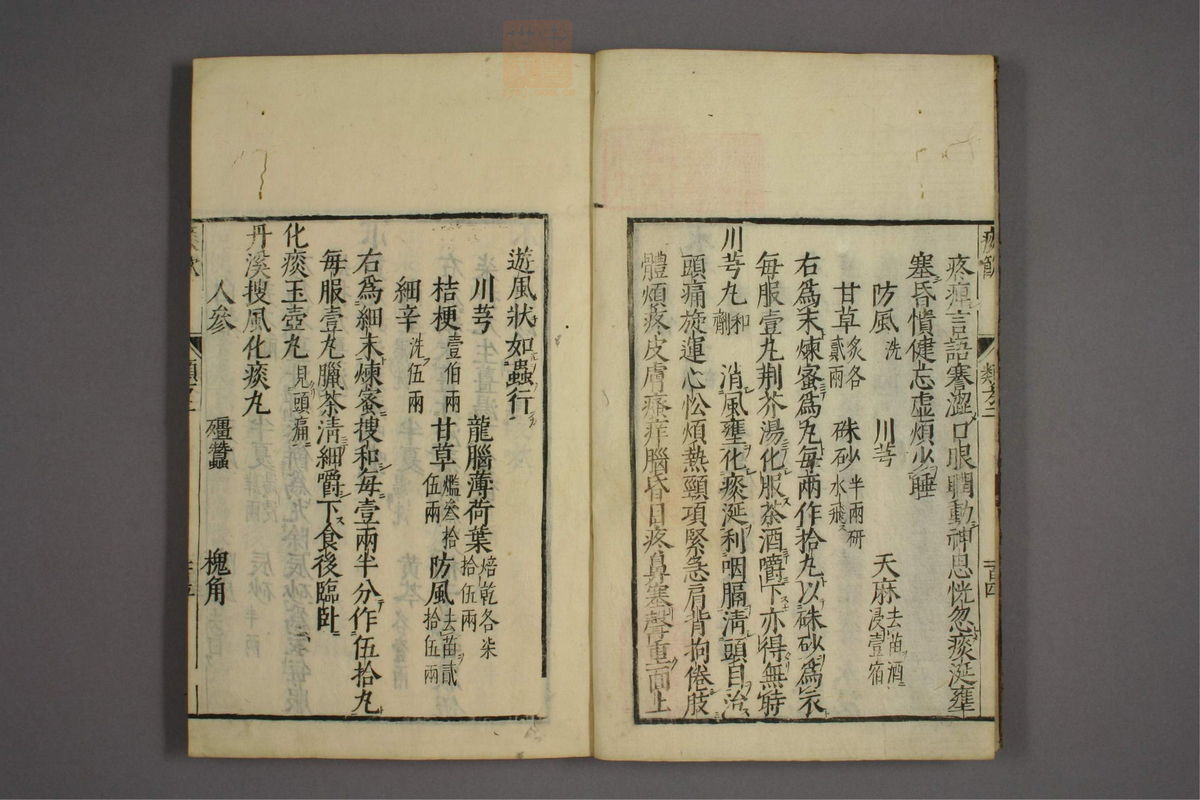 疼痺言語蹇澀口眼瞤動神思恍忽痰涎壅
塞昏憒健忘虛煩少睡
防風洗 川芎 天麻去苗酒浸壹宿
甘草炙各貳兩 硃砂半兩研水飛
右為末煉蜜為丸每兩作拾丸以硃砂為衣
每服壹丸荆芥湯化服茶酒嚼下亦得無時
川芎丸和劑 消風壅化痰涎利咽膈淸頭目治
頭痛旋運心忪煩熱頸項緊急肩背拘倦肢
體煩疼皮膚瘙痒腦昏目疼鼻塞聲重面上
遊風狀如蟲行
川芎 龍腦薄荷葉焙乾各柒拾伍兩
桔梗壹伯兩 甘草爁叁拾伍兩 防風去苗貳拾伍兩
細辛洗伍兩
右為細末煉蜜搜和每壹兩半分作伍拾丸
每服壹丸臘茶淸細嚼下食後臨臥
化痰玉壺丸見頭痛
丹溪搜風化痰丸
人參 殭蠶 槐角